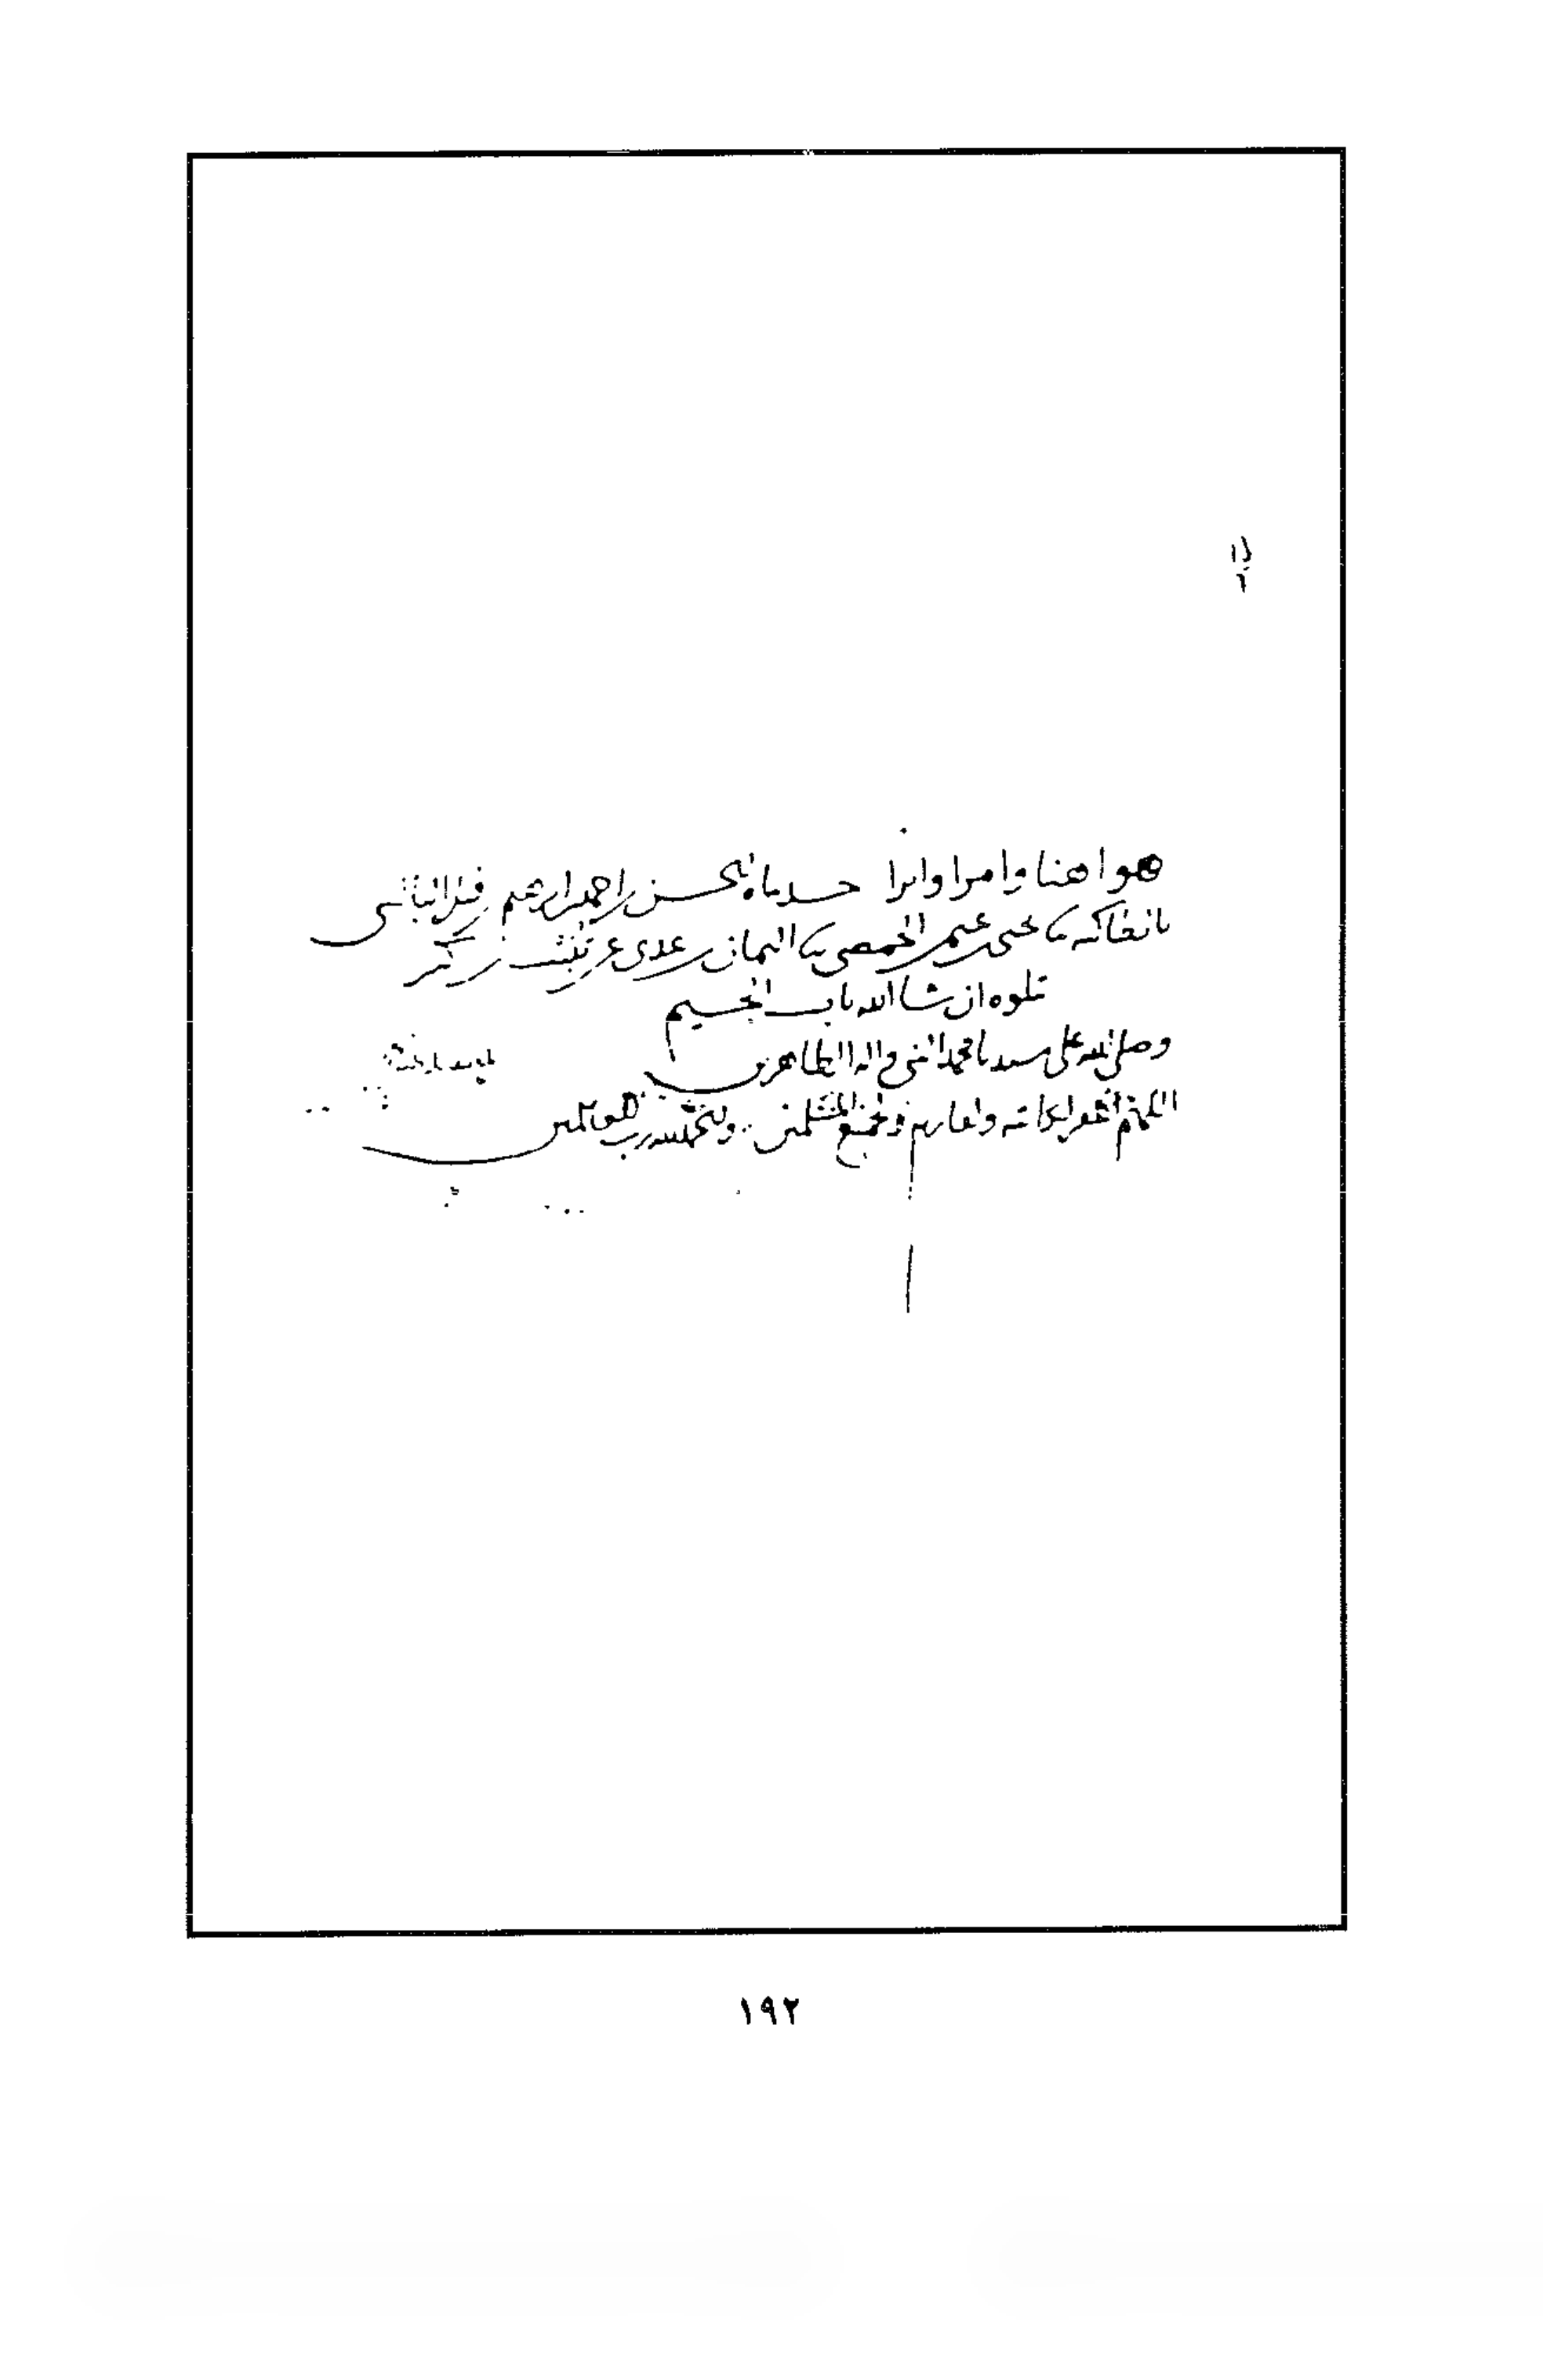 هو اهنا وامرا وابرا حدثناه ابو الحسن بن احمد بن ابرهيم بن فيل البالسي
بانطاكيه ثنا يحيى بن عثمن الحمصي ثنا اليمان بن عدي عن ثبيت بن كثير
تلوه ان شا الله باب الجسيم
وصلى الله على سيدنا محمد النبي واله الطاهرين
اللهم اغفر لكاتبه ولقاريه ولجميع المسلمين والحمد لله رب العالمين
١٩٢